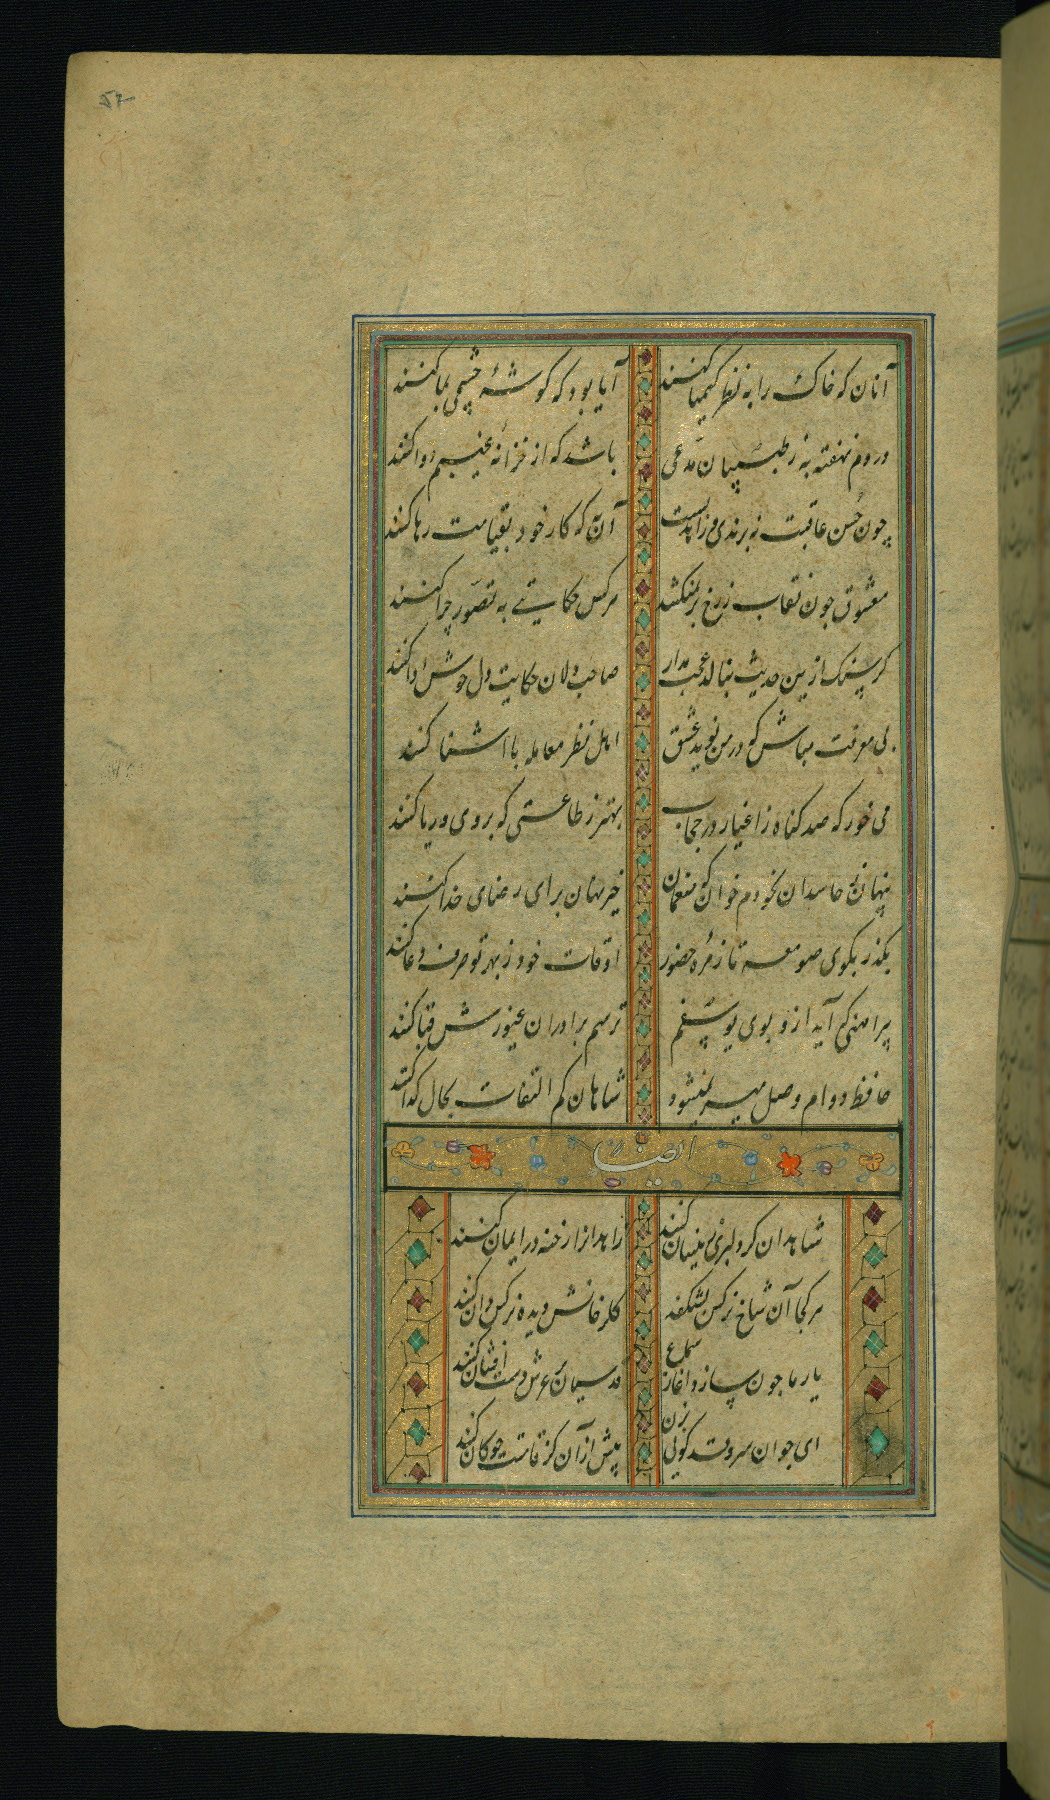 ۵۲
آنان که خاک را به نظر کیمیا کنند آیا بود که کوشهٔ چشمی بما کنند
دردم نهفته به ز طبیبان مدعی باشد که از خزانهٔ غیبم دوا کنند
چون حسن عاقبت نه برندی و زاهدیست آن به که کار خود بقیامت رها کنند
معشوق چون نقاب ز رخ برنمیکشد هرکس حکایتی به تصور چرا کنند
کر سنک ازین حدیث بنالد عجب مدار صاحب دلان حکایت دل خوش ادا کنند
بی معرفت مباش که در من یزید عشق اهل نظر معامله با آشنا کنند
می خور که صد کناه ز اغیار در حجاب بهتر ز طاعتی که بروی و ریا کنند
پنهان ز حاسدان بخودم خوان که منعمان خیر نهان برای رضای خدا کنند
بکذر بکوی صومعه تا زمرهٔ حضور اوقات خود ز بهر تو صرف دعا کنند
پیراهنی که آید ازو بوی یوسفم ترسم برادران غیورش قبا کنند
حافظ دوام وصل میسر نمیشود شاهان کم التفات بحال کدا کنند
ایضا
شاهدان کر دلبری زینسان کنند زاهدانرا رخنه در ایمان کنند
هر کجا آن شاخ نرکس بشکفد کلرخانش دیده نرکس دان کنند
یار ما چون سازد آغاز سماع قدسیان بر عرش دست افشان کنند
ای جوان سرو قد کویی بزن پیش از آن کز قامتت چوکان کنند